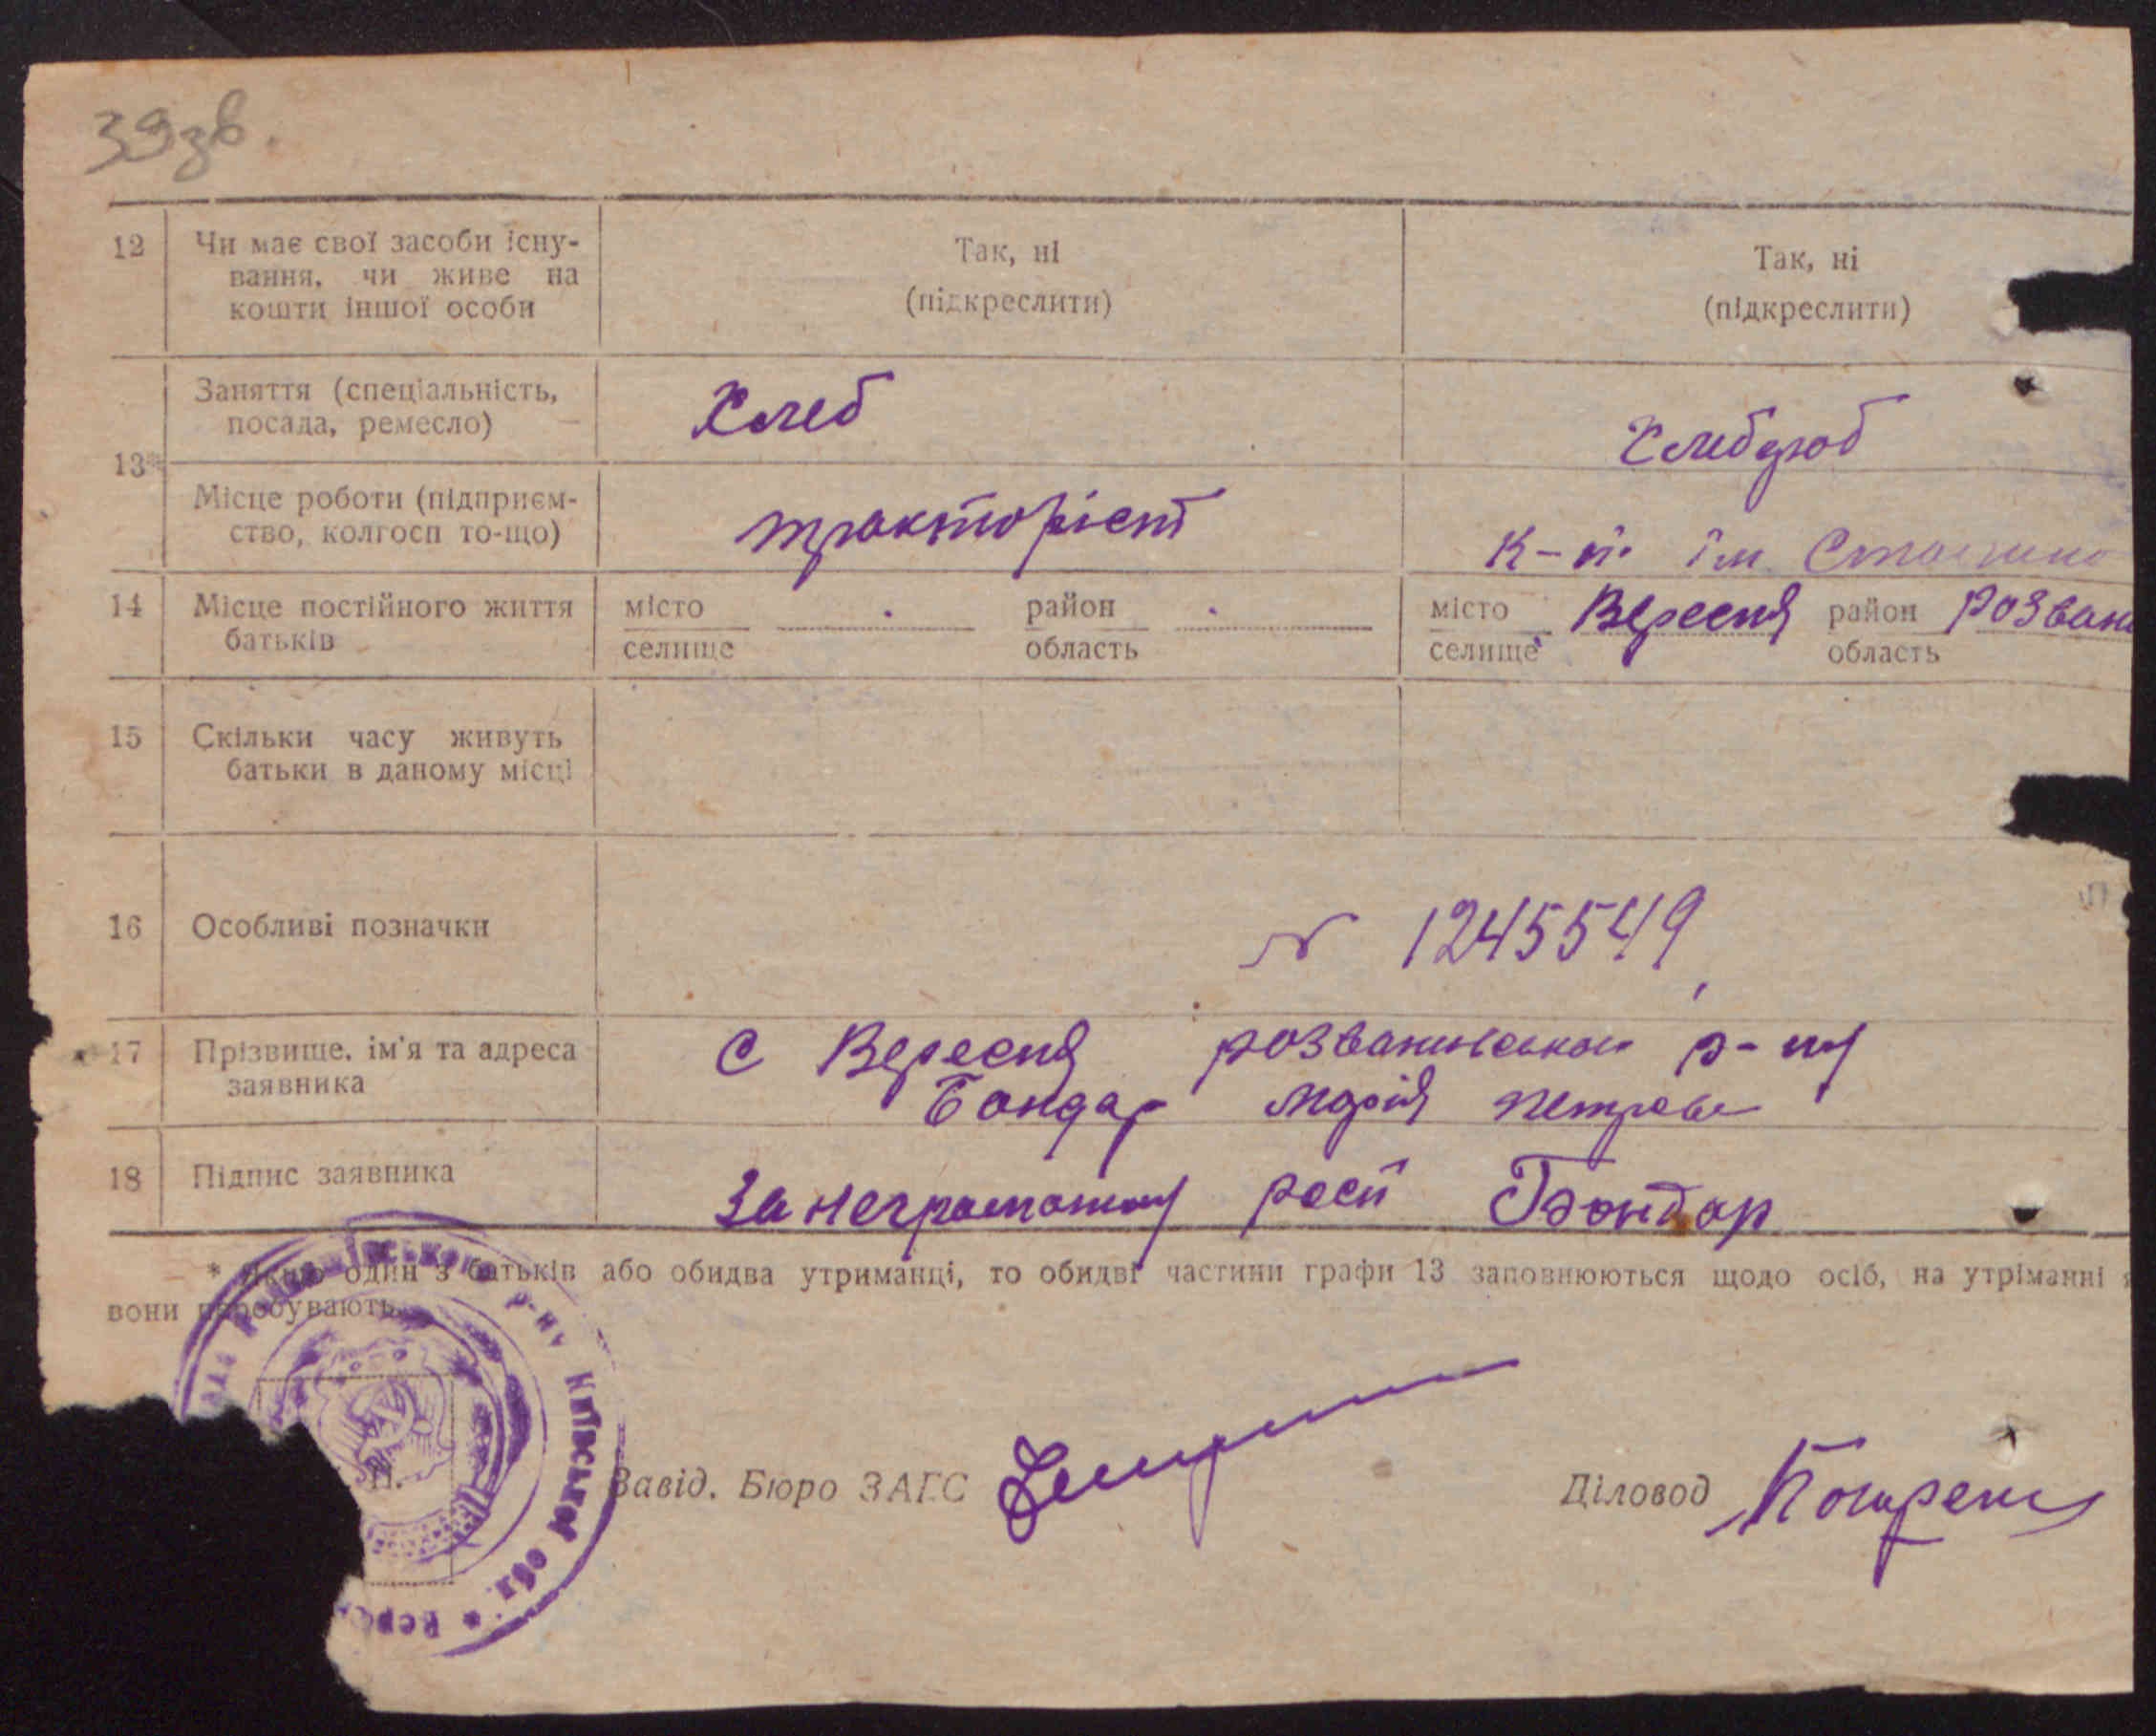 39зв.
12 Чи має свої засоби існу-
вання, чи живе на
кошти іншої особи
Так, ні
(підкреслити)
Так, ні
(підкреслити)
13*
Заняття (спеціальність,
посада, ремесло)
Хлеб
Хлебороб
Місце роботи (підприєм-
ство, колгосп то-що)
тракторіст
к-п ім Сталина
14 Місце постійного життя
батьків
місто
селище
район
область
місто
селище
Вересня
район
область
Розван
15 Скільки часу живуть
батьки в даному місці
16 Особливі позначки
№ 1245549
17 Прізвище, ім'я та адреса
заявника
с Вересня розванивського р-ну
Бондар Марія Петровн
18 Підпис заявника
За неграмотну росп Бондар
* Якщо один з батьків або обидва утриманці, то обидві частини графи 13 заповнюються щодо осіб, на утріманні
вони перебувають.
р-ну Київської обл. *
Завід. Бюро ЗАГС
Діловод